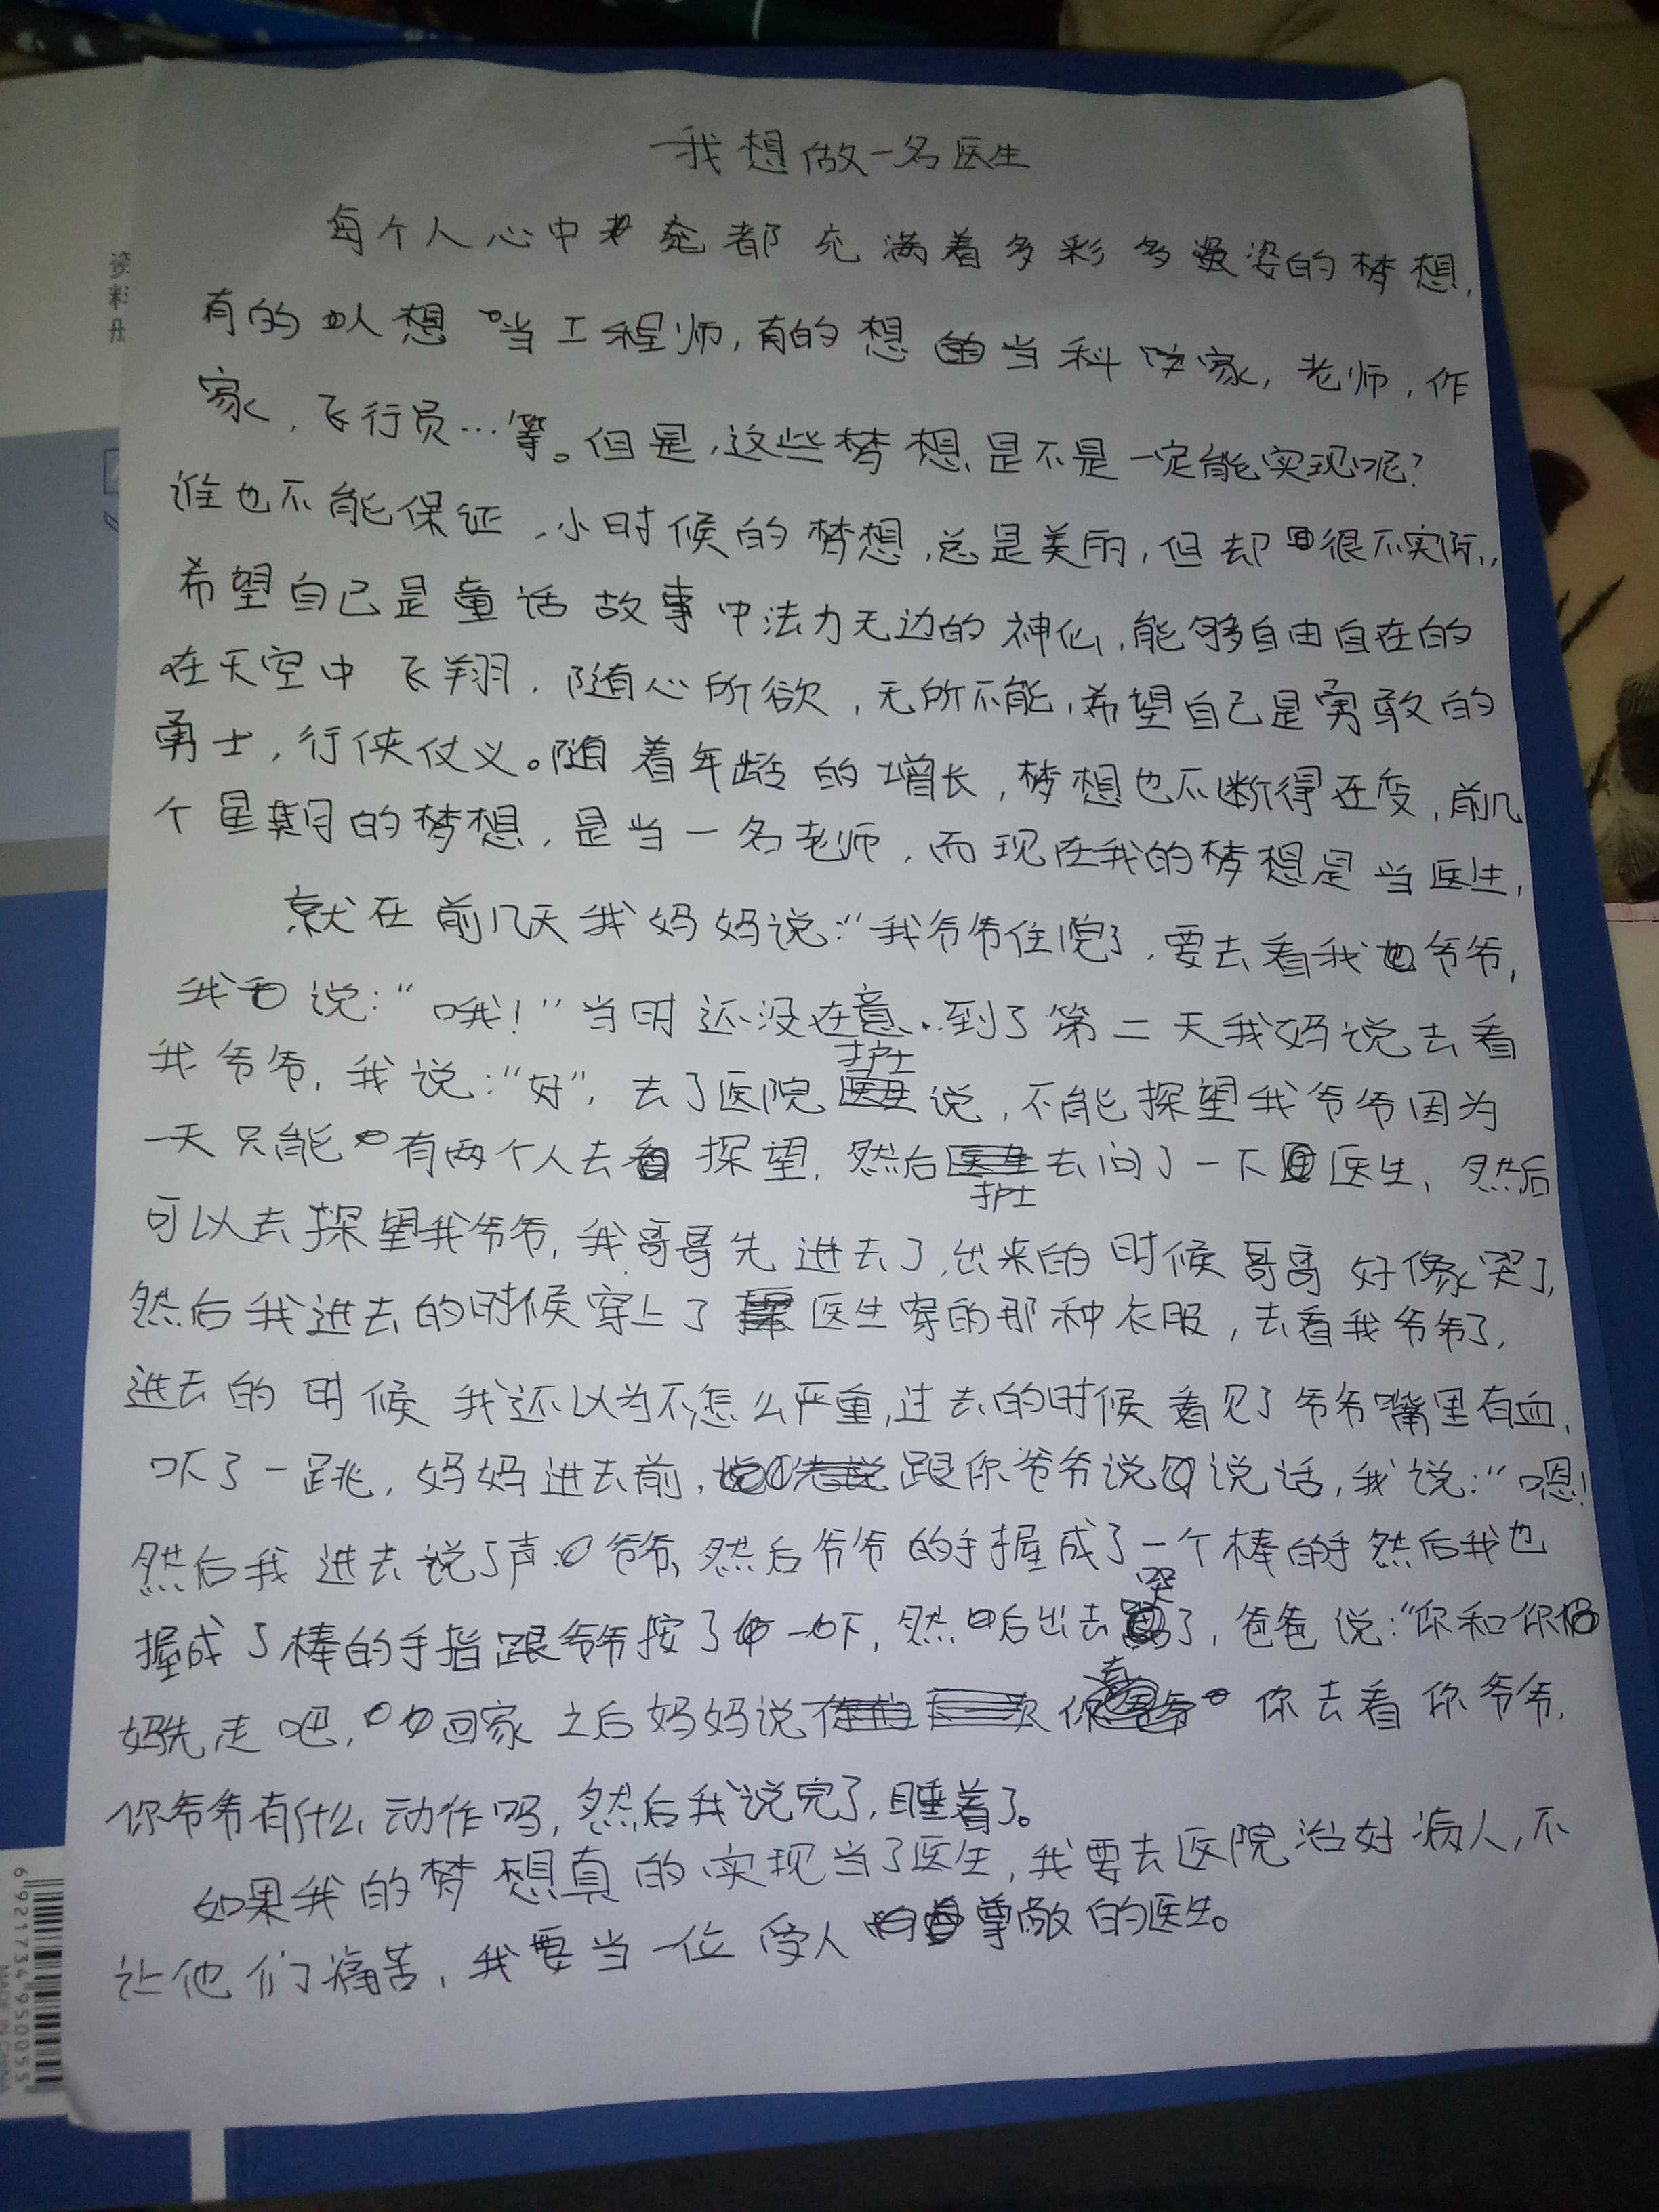 我想做一名医生
每个人心中都充满着多彩多姿的梦想,
有的人想当工程师,有的想当科学家,老师,作
家,飞行员…等。但是,这些梦想是不是一定能实现呢?
谁也不能保证,小时候的梦想,总是美丽,但却很不实际,
希望自己是童话故事中法力无边的神仙,能够自由自在的
在天空中飞翔,随心所欲,无所不能,希望自己是勇敢的
勇士,行侠仗义。随着年龄的增长,梦想也不断得在变,前几
个星期的梦想,是当一名老师,而现在我的梦想是当医生,
就在前几天我妈妈说:“我爷爷住院了,要去看我爷爷,
我说:“哦!”当时还没在意..到了第二天我妈说去看
我爷爷,我说:“好”,去了医院护士说,不能探望我爷爷因为
一天只能有两个人去探望,然后护士去问了一下医生,然后
可以去探望我爷爷,我哥哥先进去了,出来的时候哥哥好像哭了,
然后我进去的时候穿上了医生穿的那种衣服,去看我爷爷了,
进去的时候我还以为不怎么严重,过去的时候看见了爷爷嘴里有血,
吓了一跳,妈妈进去前,跟你爷爷说说话,我说:“嗯!
然后我进去说了声:爷爷,然后爷爷的手握成了一个棒的手然后我也
握成了棒的手指跟爷爷按了一下,然后出去哭了,爸爸说:“你和你
妈先走吧,回家之后妈妈说你去看你爷爷,
你爷爷有什么动作吗,然后我说完了,睡着了。
如果我的梦想真的实现当了医生,我要去医院治好病人,不
让他们痛苦,我要当一位受人尊敬的医生。
资料册
6921734950055
MADE IN CHINA